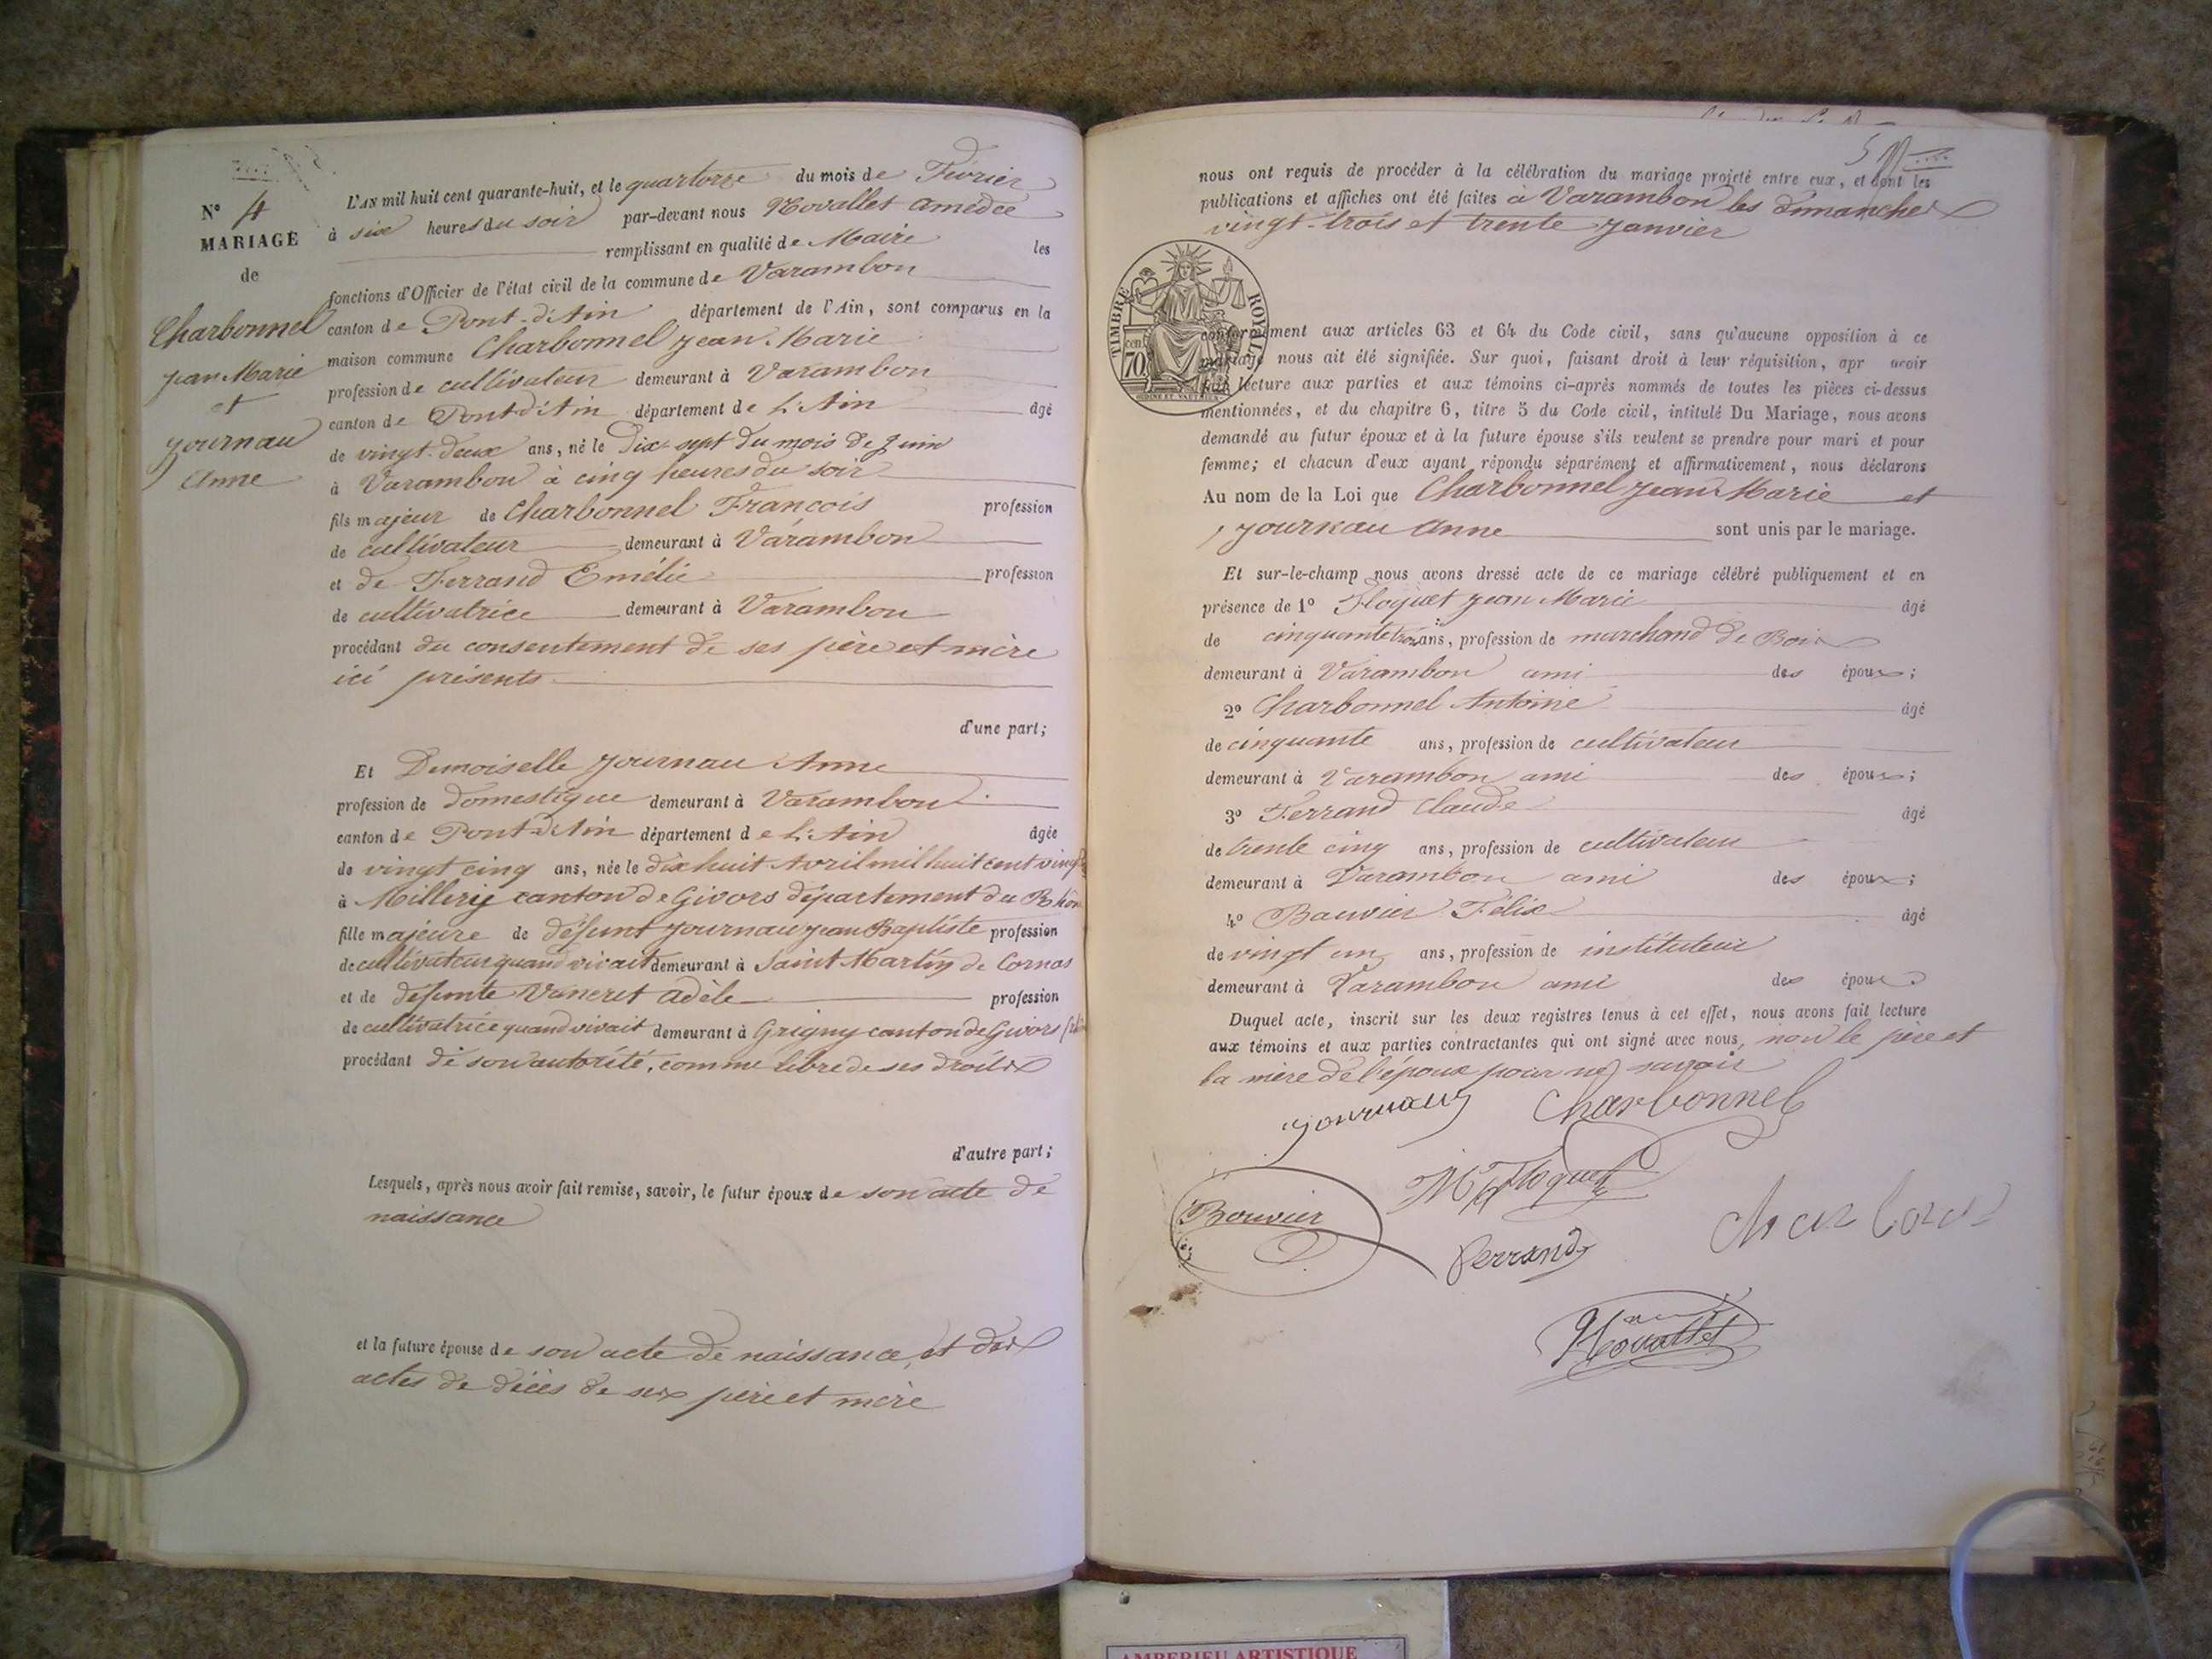 N° 4
MARIAGE
de
Charbonnel
Jean Marie
et
Journau
Anne
L'AN mil huit cent quarante-huit, et le quatorze du mois de Février
à six heures du soir par-devant nous Novallet Amédée
remplissant en qualité de Maire les
fonctions d'Officier de l'état civil de la commune de Varambon
canton de Pont-d'Ain département de l'Ain, sont comparus en la
maison commune Charbonnel Jean Marie
profession de cultivateur demeurant à Varambon
canton de Pont d'Ain département de L'Ain âgé
de vingt-deux ans, né le Dix-sept du mois de Juin
à Varambon à cinq heures du soir
fils majeur de Charbonnel François profession
de cultivateur demeurant à Varambon
et de Ferrand Emélie profession
de cultivatrice demeurant à Varambon
procédant du consentement de ses père et mère
ici présents
d'une part;
Et Demoiselle Journau Anne
profession de domestique demeurant à Varambon
canton de Pont-d'Ain département de L'Ain âgée
de vingt cinq ans, née le dix huit Avril mil huit cent vingt
à Millery canton de Givors département du Rhône
fille majeure de défunt Journau Jean Baptiste profession
de cultivateur quand vivait demeurant à Saint Martin de Cornas
et de défunte Vaneret Adèle profession
de cultivatrice quand vivait demeurant à Grigny canton de Givors
procédant de son autorité, comme libre de ses droits
d'autre part;
Lesquels, après nous avoir fait remise, savoir, le futur époux de son acte de
naissance
et la future épouse de son acte de naissance, et des
actes de décès de ses père et mère
nous ont requis de procéder à la célébration du mariage projeté entre eux, et dont les
publications et affiches ont été faites à Varambon les dimanches
vingt-trois et trente Janvier
TIMBRE ROYAL
cent 70
conformément aux articles 63 et 64 du Code civil, sans qu'aucune opposition à ce
mariage nous ait été signifiée. Sur quoi, faisant droit à leur réquisition, apr avoir
fait lecture aux parties et aux témoins ci-après nommés de toutes les pièces ci-dessus
mentionnées, et du chapitre 6, titre 5 du Code civil, intitulé Du Mariage, nous avons
demandé au futur époux et à la future épouse s'ils veulent se prendre pour mari et pour
femme; et chacun d'eux ayant répondu séparément et affirmativement, nous déclarons
Au nom de la Loi que Charbonnel Jean Marie et
Journau Anne sont unis par le mariage.
Et sur-le-champ nous avons dressé acte de ce mariage célébré publiquement et en
présence de 1° Floquet Jean Marie âgé
de cinquante trois ans, profession de marchand de Bois
demeurant à Varambon ami des époux;
2° Charbonnel Antoine âgé
de cinquante ans, profession de cultivateur
demeurant à Varambon ami des époux;
3° Ferrand Claude âgé
de trente cinq ans, profession de cultivateur
demeurant à Varambon ami des époux;
4° Bouvier Félix âgé
de vingt un ans, profession de instituteur
demeurant à Varambon ami des époux
Duquel acte, inscrit sur les deux registres tenus à cet effet, nous avons fait lecture
aux témoins et aux parties contractantes qui ont signé avec nous, non le père et
la mère de l'époux pour ne savoir
Journau Charbonnel
Floquet
Bouvier
Ferrand
Novallet
AMBERIEU ARTISTIQUE